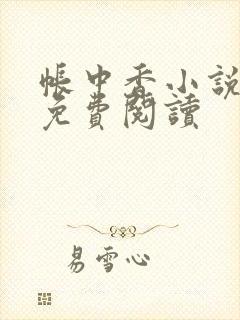 帳中香小說
免費閱讀
易雪心